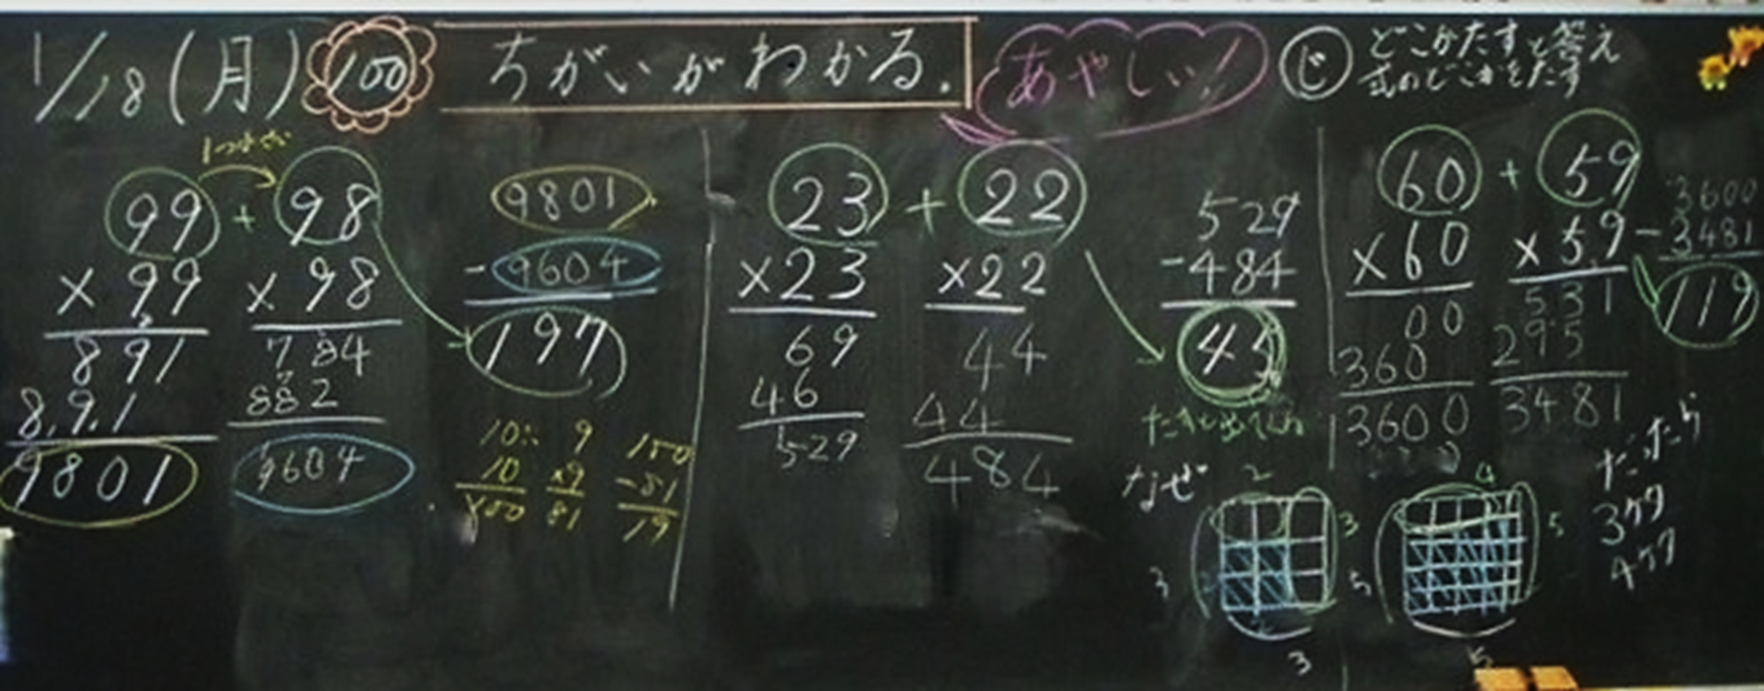 1/18(月) 100 ちがいがわかる. あやしい! じ どこかたすと答え
式のどこかをたす
99 + 98
×99 ×98
891 784
891 882
9801 9604
9801
-9604
197
10 9 100
10 ×9 -81
100 81 19
23 + 22
×23 ×22
69 44
46 44
529 484
529
-484
45
なぜ
2
3
3
3
60 + 59
×60 ×59
00 531
360 295
3600 3481
3600
-3481
119
4
5
5
5
だったら
3ケタ
4ケタ